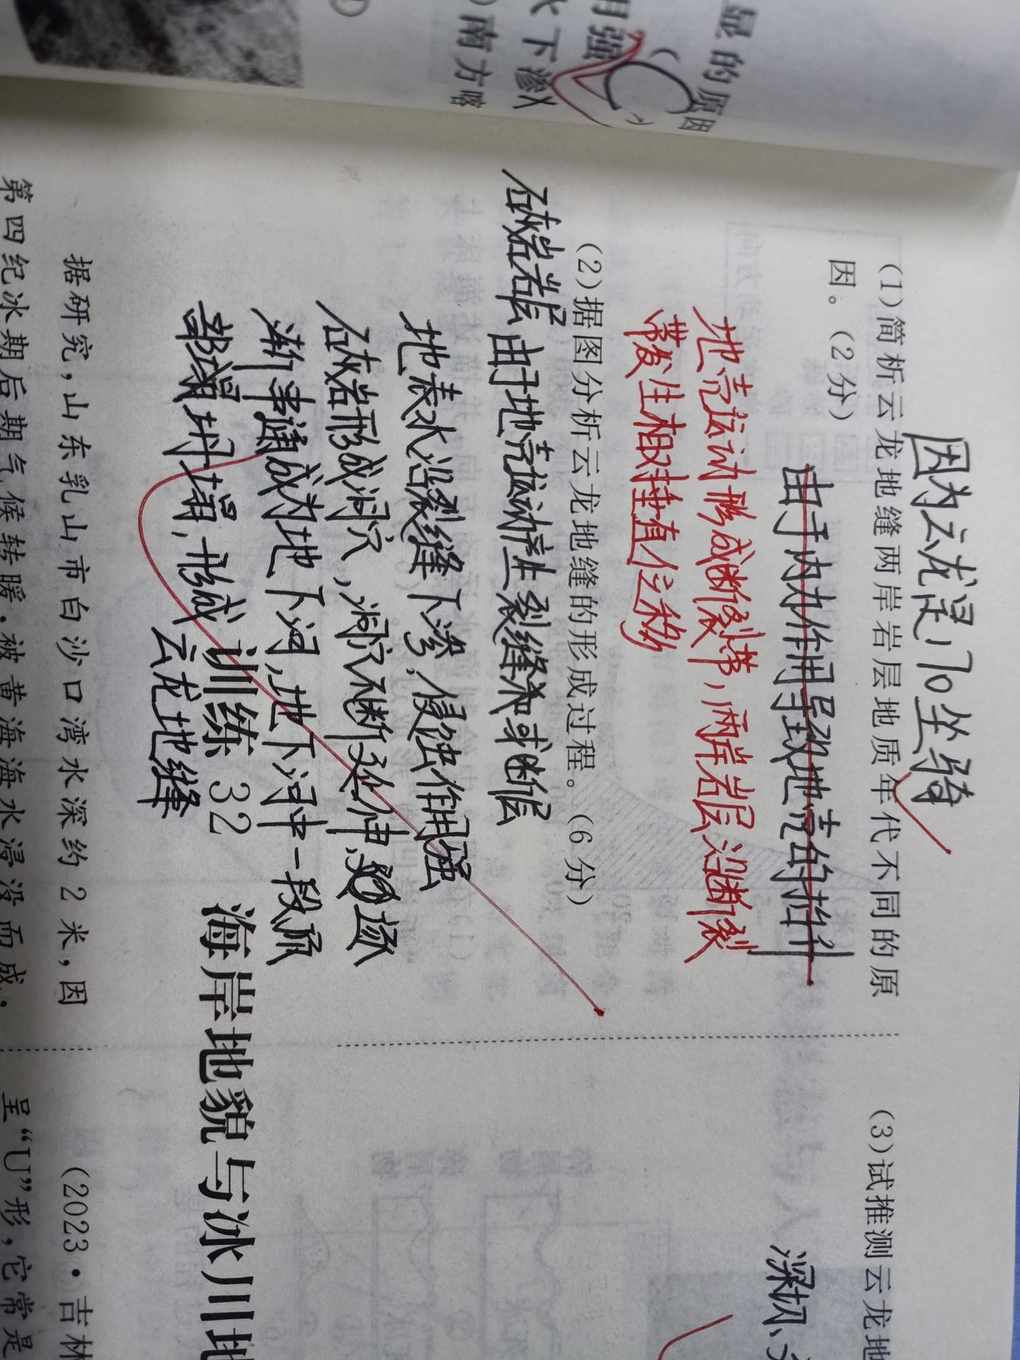 显的原因
用强(
下渗
南方喀
因为云龙是170坐骑
(1)简析云龙地缝两岸岩层地质年代不同的原
因。(2分)
由于内力作用导致地壳的抬升
地壳运动形成断裂带,两岸岩层沿断裂
带发生相对垂直位移
(2)据图分析云龙地缝的形成过程。(6分)
石灰岩岩层由于地壳运动产生裂缝和或断层
地表水沿裂缝下渗,侵蚀作用强
石灰岩形成洞穴,洞穴不断延伸
渐串通成为地下河,地下河中一段顶
部塌,形成
云龙地缝
训练 32 海岸地貌与冰川地
据研究,山东乳山市白沙口湾水深约2米,因
第四纪冰期后期气候转暖,被黄海海水浸没而成.
(3)试推测云龙地
深切、
(2023·吉林
呈“U”形,它常是